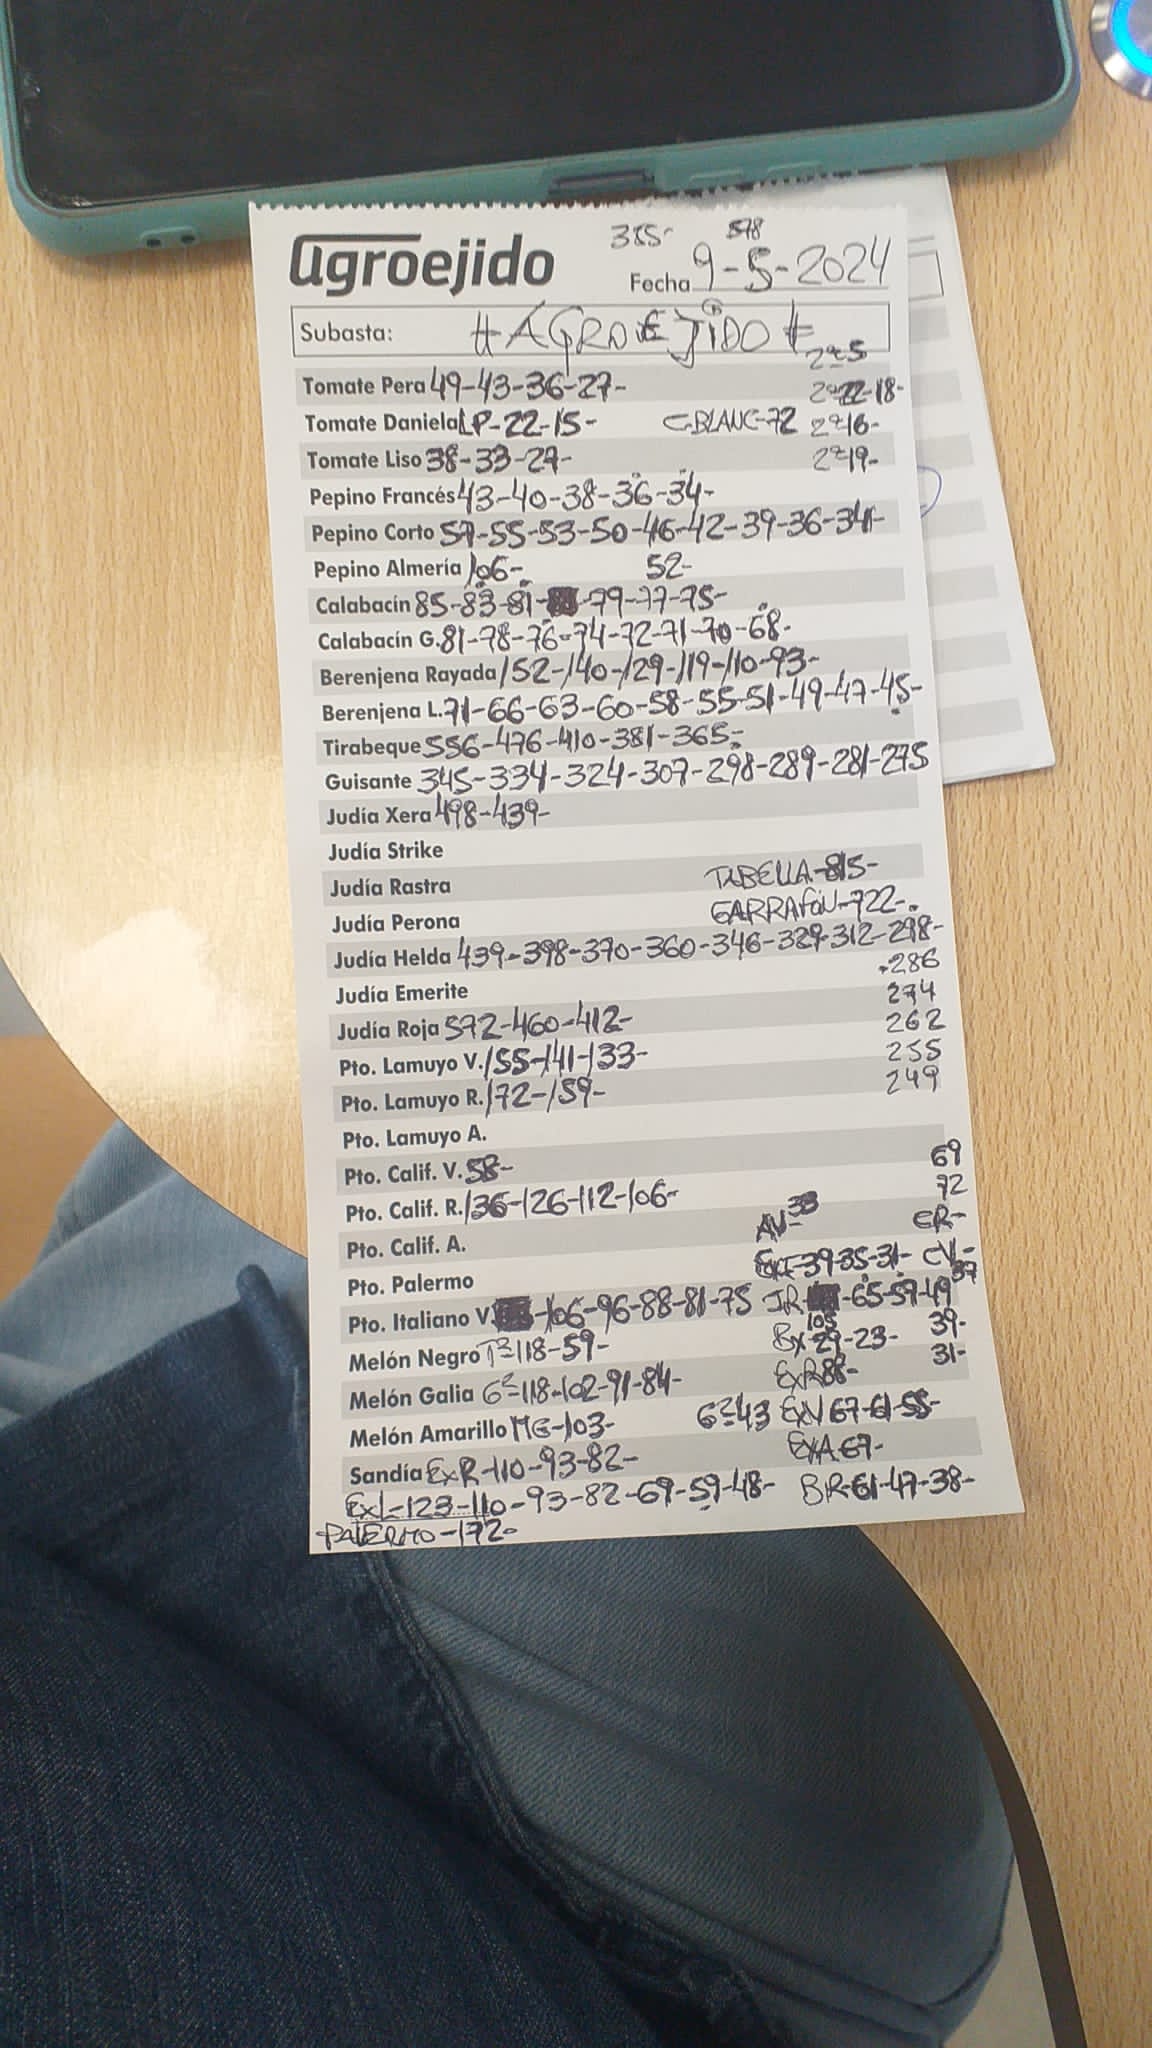 355- 578
agroejido
Fecha 9-5-2024
Subasta: #AGROEJIDO#
2ª-5
Tomate Pera 49-43-36-27- 2ª-22-18-
Tomate Daniela LP-22-15- C-BLANC-72 2ª-16-
Tomate Liso 38-33-27- 2ª-19-
Pepino Francés 43-40-38-36-34-
Pepino Corto 57-55-53-50-46-42-39-36-34-
Pepino Almería 106- 52-
Calabacín 85-83-81- -79-77-75-
Calabacín G. 81-78-76-74-72-71-70-68-
Berenjena Rayada 152-140-129-119-110-93-
Berenjena L. 71-66-63-60-58-55-51-49-47-45-
Tirabeque 556-476-410-381-365-
Guisante 345-334-324-307-298-289-281-275
Judía Xera 498-439-
Judía Strike
Judía Rastra TABELLA-815-
Judía Perona GARRAFÓN-722-
Judía Helda 439-398-370-360-346-329-312-298-
286
Judía Emerite 274
Judía Roja 572-460-412- 262
Pto. Lamuyo V. 155-141-133- 255
Pto. Lamuyo R. 172-159- 249
Pto. Lamuyo A.
Pto. Calif. V. 58- 69
Pto. Calif. R. 136-126-112-106- 72
Pto. Calif. A. AV-33 CR-
Pto. Palermo 39-35-31- CV-
37
Pto. Italiano V. -106-96-88-81-75 IR- -65-57-49
105
Melón Negro Tª-118-59- Bx-29-23- 39-
Melón Galia Gª-118-102-91-84- ExR88- 31-
Melón Amarillo MG-103- Gª-43 ExV67-61-55-
Sandía ExR-110-93-82- ExA67-
ExL-123-110-93-82-69-59-48- BR-61-47-38-
PALERMO-172-